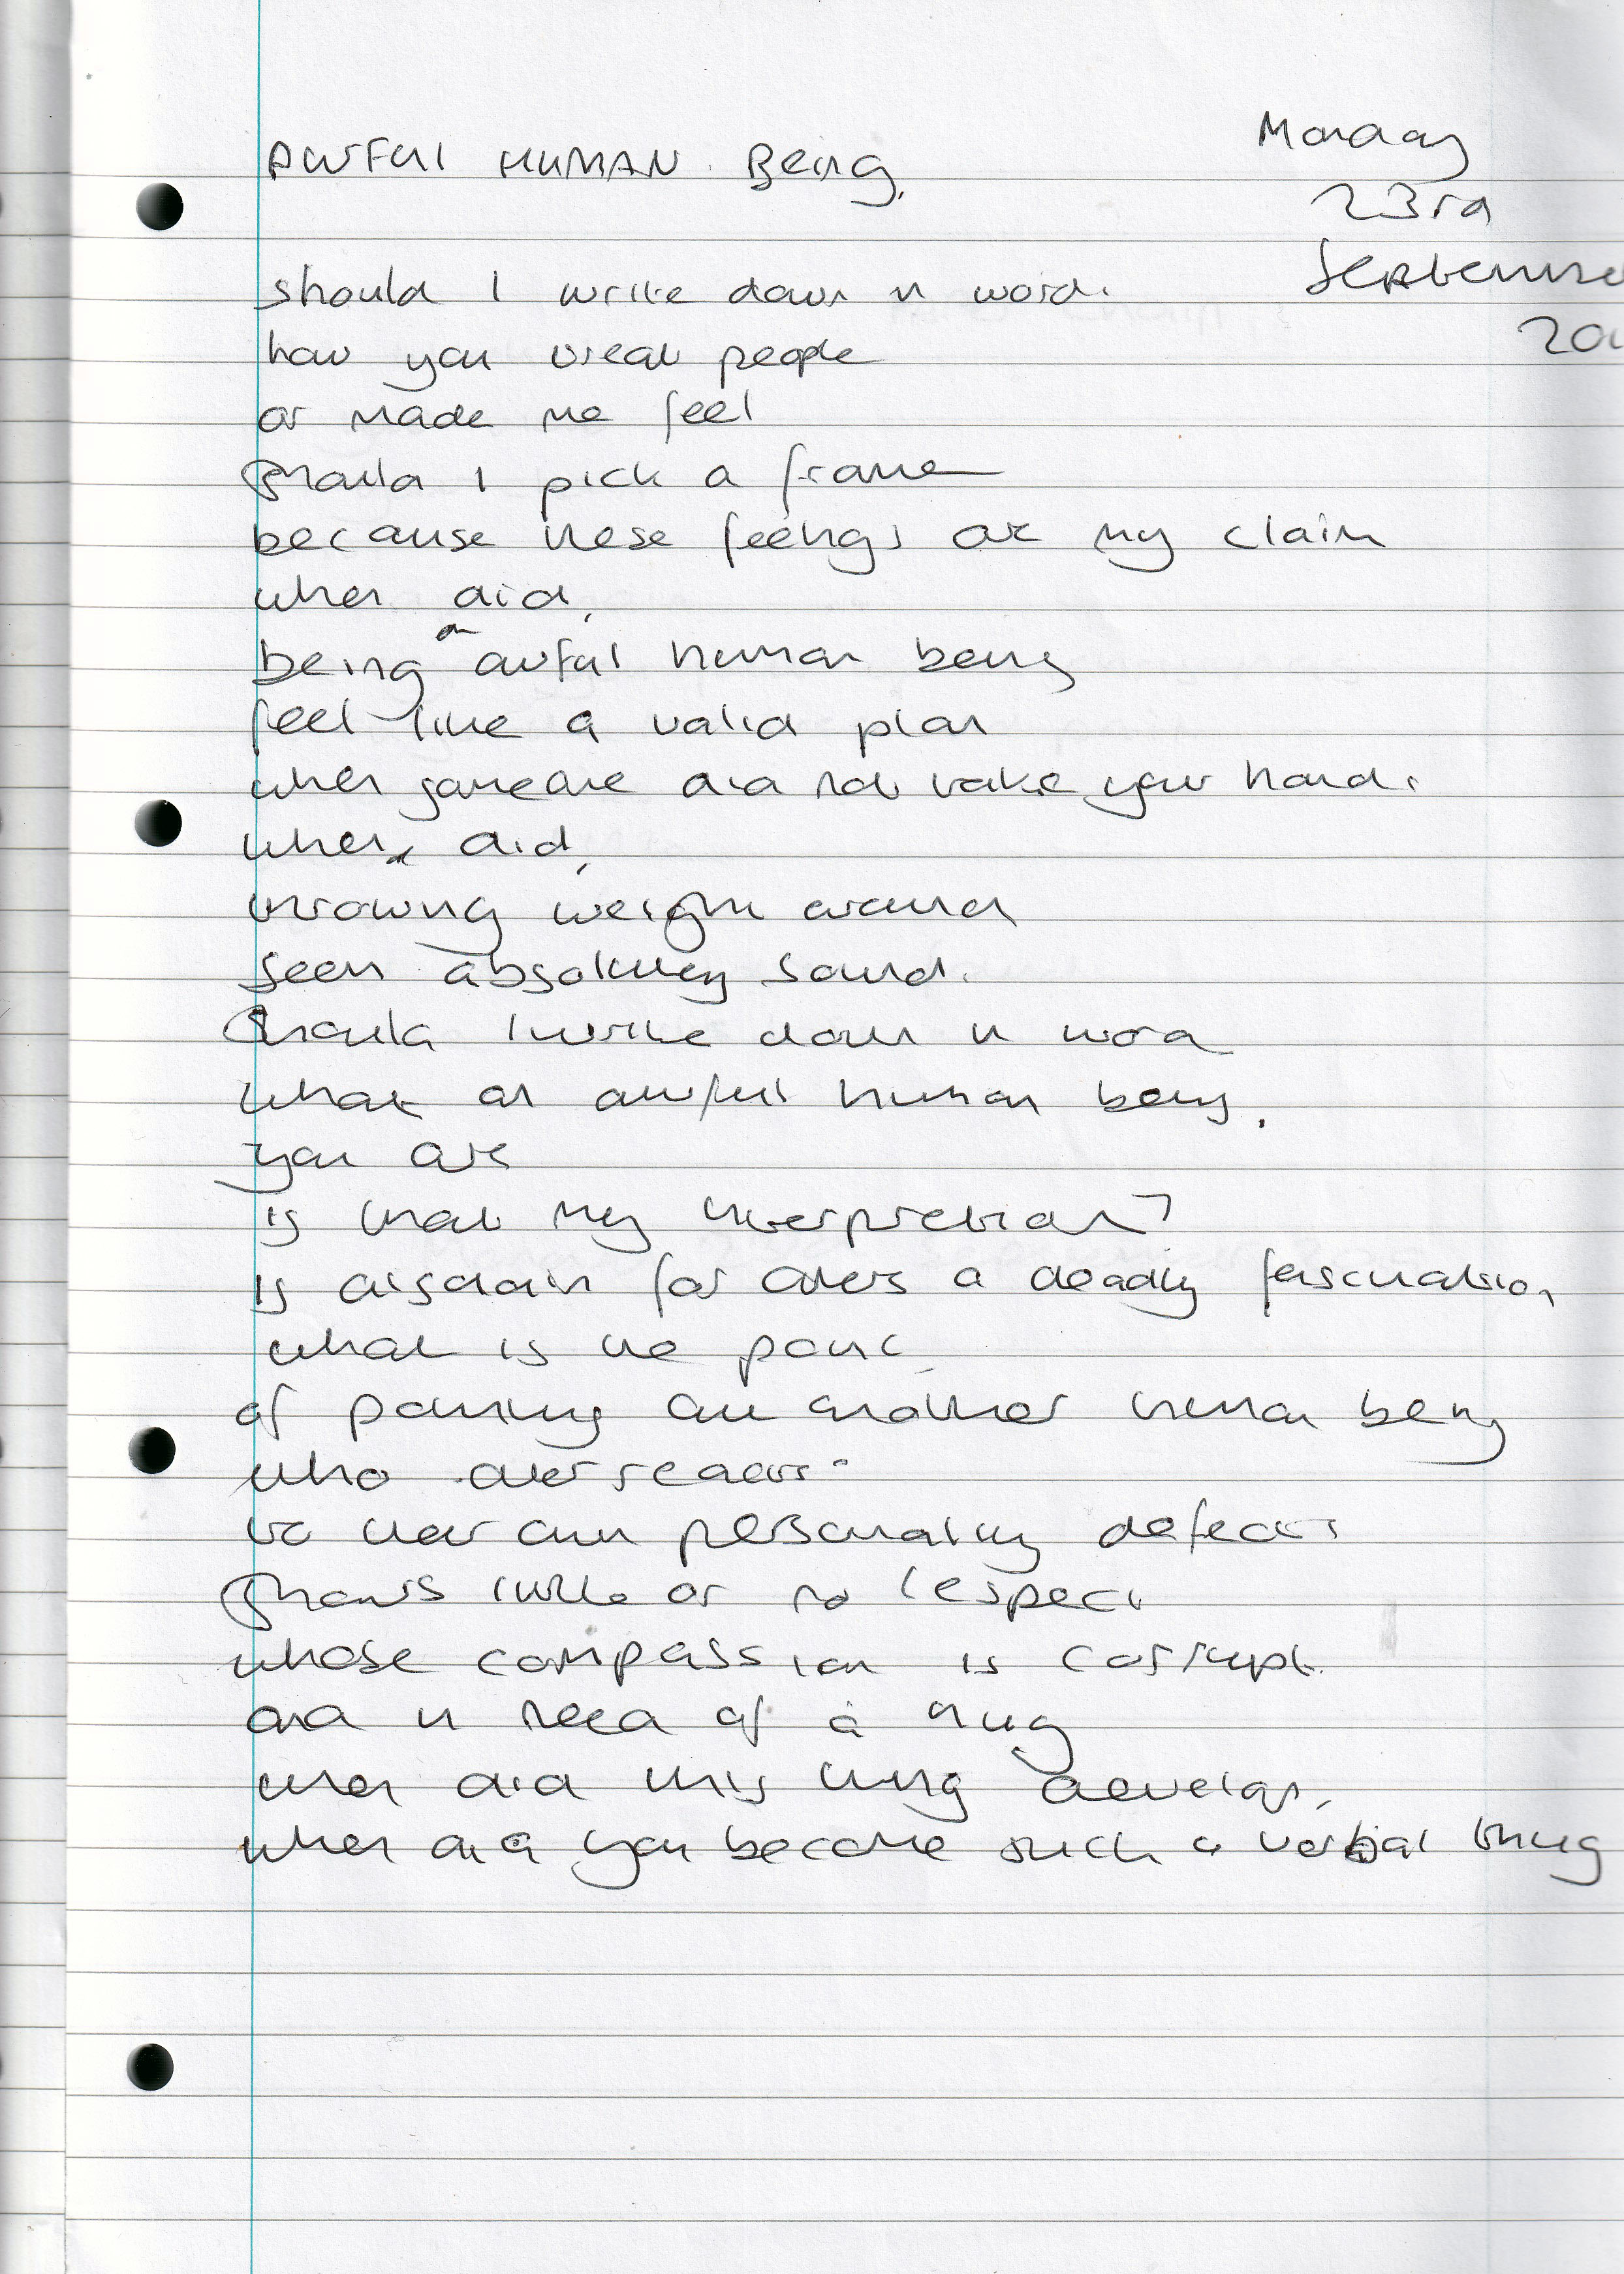 AWFUl HUMAN Being.
Monday
23rd
September
20
should I write down in word.
how you treat people
or made me feel
Should I pick a frame
because these feelings are my claim
when did,
being an awful human being
feel like a valid plan
when someone did not take your hand.
when did,
throwing weight around
seem absolutely sound.
Should I write down in word
what an awful human being.
you are
is that my interpretation?
is disdain for others a deadly fascination
what is the point
of pointing out another human being
who overreacts
to their own personality defects
Shows little or no respect
whose compassion is corrupt.
and in need of a hug
when did this thing develop,
when did you become such a verbal thug